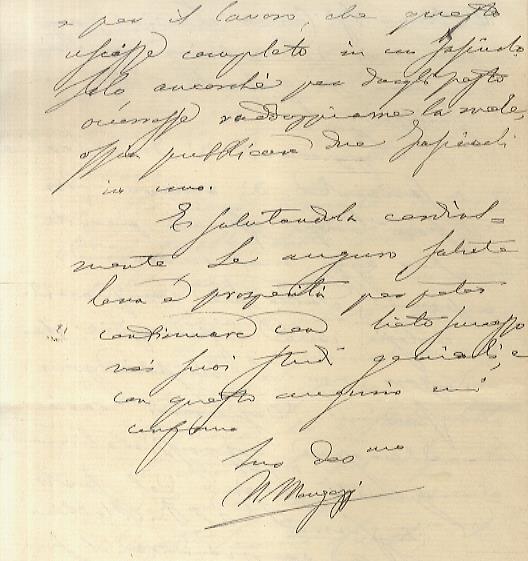 e per il lavoro, che questo
uscisse completo in un fascicolo
solo ancorchè per dargli posto
occoresse raddoppiarne la mole,
ossia pubblicare due fascicoli
in uno.
E salutandola cordial-
mente Le auguro salute
lena e prosperità per poter
continuare con lieto successo
nei suoi studi geniali, e
con questo augurio mi
confermo
Suo dev mo